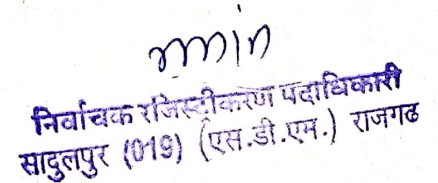 निर्वाचक रजिस्ट्रीकरण पदाधिकारी
सादुलपुर (019) (एस.डी.एम.) राजगढ